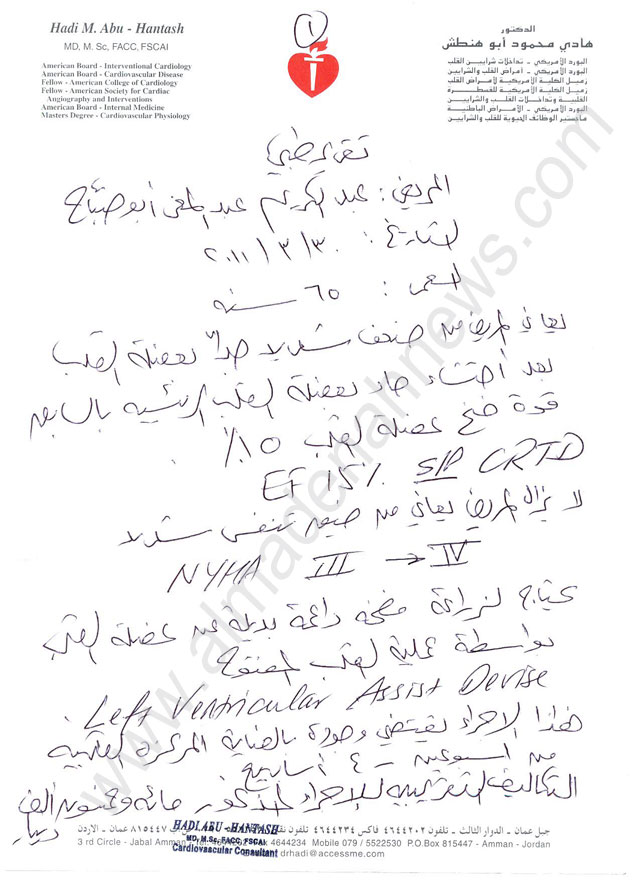 Hadi M. Abu - Hantash
MD, M. Sc, FACC, FSCAI
American Board - Interventional Cardiology
American Board - Cardiovascular Disease
Fellow - American College of Cardiology
Fellow - American Society for Cardiac
Angiography and Interventions
American Board - Internal Medicine
Masters Degree - Cardiovascular Physiology
1
الدكتور
هادي محمود أبو هنطش
البورد الأمريكي - تداخلات شرايين القلب
البورد الأمريكي - أمراض القلب والشرايين
زميل الكلية الأمريكية لأمراض القلب
زميل الكلية الأمريكية للقسطرة
القلبية وتداخلات القلب والشرايين
البورد الأمريكي - الأمراض الباطنية
ماجستير الوظائف الحيوية للقلب والشرايين
تقرير طبي
المريض : عبد الكريم عبد المعطي أبو صباح
التاريخ : ٢٠١١/٣/٣٠
العمر : ٦٥ سنه
يعاني المريض من ضعف شديد جداً بعضلة القلب
بعد احتشاء حاد بعضلة القلب
قوة ضخ عضلة القلب ١٥٪
EF 15% S/P CRTD
لا يزال المريض يعاني من ضيق تنفس شديد
NYHA III → IV
يحتاج لزراعة مضخة دائمة بديلة عن عضلة القلب
بواسطة عملية القلب المصنوع
Left Ventricular Assist Devise.
هذا الإجراء يقتضي وجوده بالعناية المركزة القلبية
من أسبوعين - ٤ أسابيع
التكاليف التقريبية للإجراء المذكور مائة وخمسون ألف
دينار
HADI ABU - HANTASH
MD, M.Sc, FACC, FSCAI
Cardiovascular Consultant
جبل عمان - الدوار الثالث - تلفون ٤٦٤٤٢٠٢ فاكس ٤٦٤٤٢٣٤ تلفون ٨١٥٤٤٧ عمان - الأردن
3 rd Circle - Jabal Amman 4644234 Mobile 079 / 5522530 P.O.Box 815447 - Amman - Jordan
drhadi@accessme.com
www.almadenahnews.com